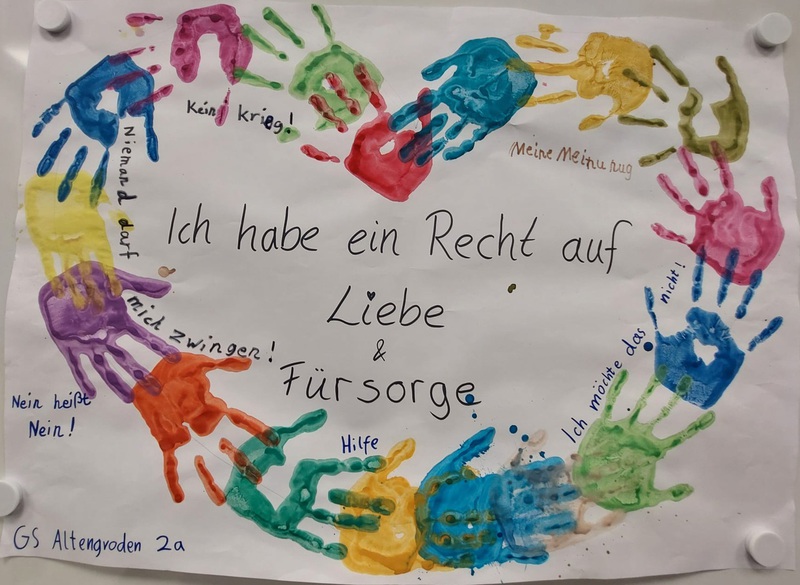 Kein krieg!
Meine Meinunug
Niemand darf
mich zwingen!
Ich habe ein Recht auf
Liebe
&
Fürsorge
Ich möchte das nicht!
Nein heißt
Nein!
Hilfe
GS Altengroden 2a